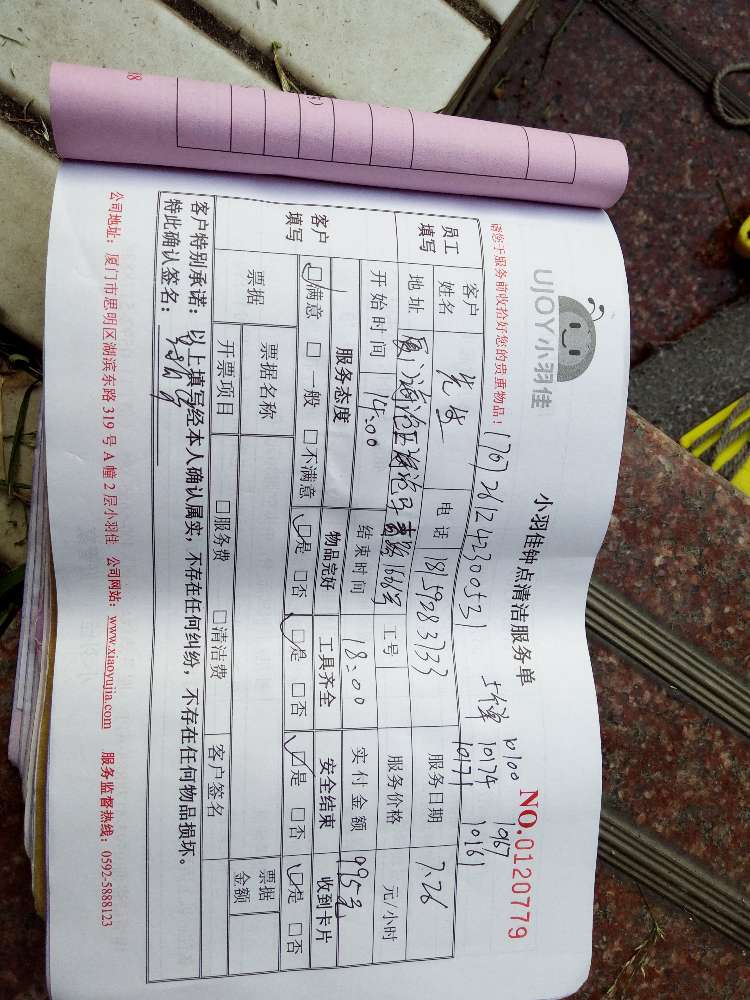 UJOY小羽佳
小羽佳钟点清洁服务单
NO.0120779
请您于服务前收拾好您的贵重物品!
10100 1967
10174 10161
10171
员工填写
客户姓名
先生
电话 18159283733
服务日期 7.26
地址
工号
服务价格 元/小时
开始时间 14:00
结束时间 18:00
实付金额
客户填写
服务态度 物品完好 工具齐全 安全结束 收到卡片
☑满意 □一般 □不满意 ☑是 □否 ☑是 □否 ☑是 □否 ☑是 □否
票据
票据名称
客户签名
票据金额
开票项目 □服务费 □清洁费
客户特别承诺:以上填写经本人确认属实,不存在任何纠纷,不存在任何物品损坏。
特此确认签名:
公司地址:厦门市思明区湖滨东路 319 号 A 幢 2 层小羽佳 公司网站:www.xiaoyujia.com 服务监督热线:0592-5888123